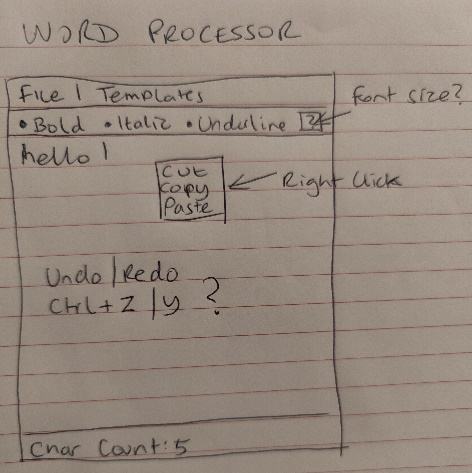 WORD PROCESSOR
File | Templates
• Bold • Italiz • Unduline 12
font size?
hello |
Cut
Copy
Paste
Right Click
Undo/Redo
Ctrl + Z / y ?
Char Count: 5